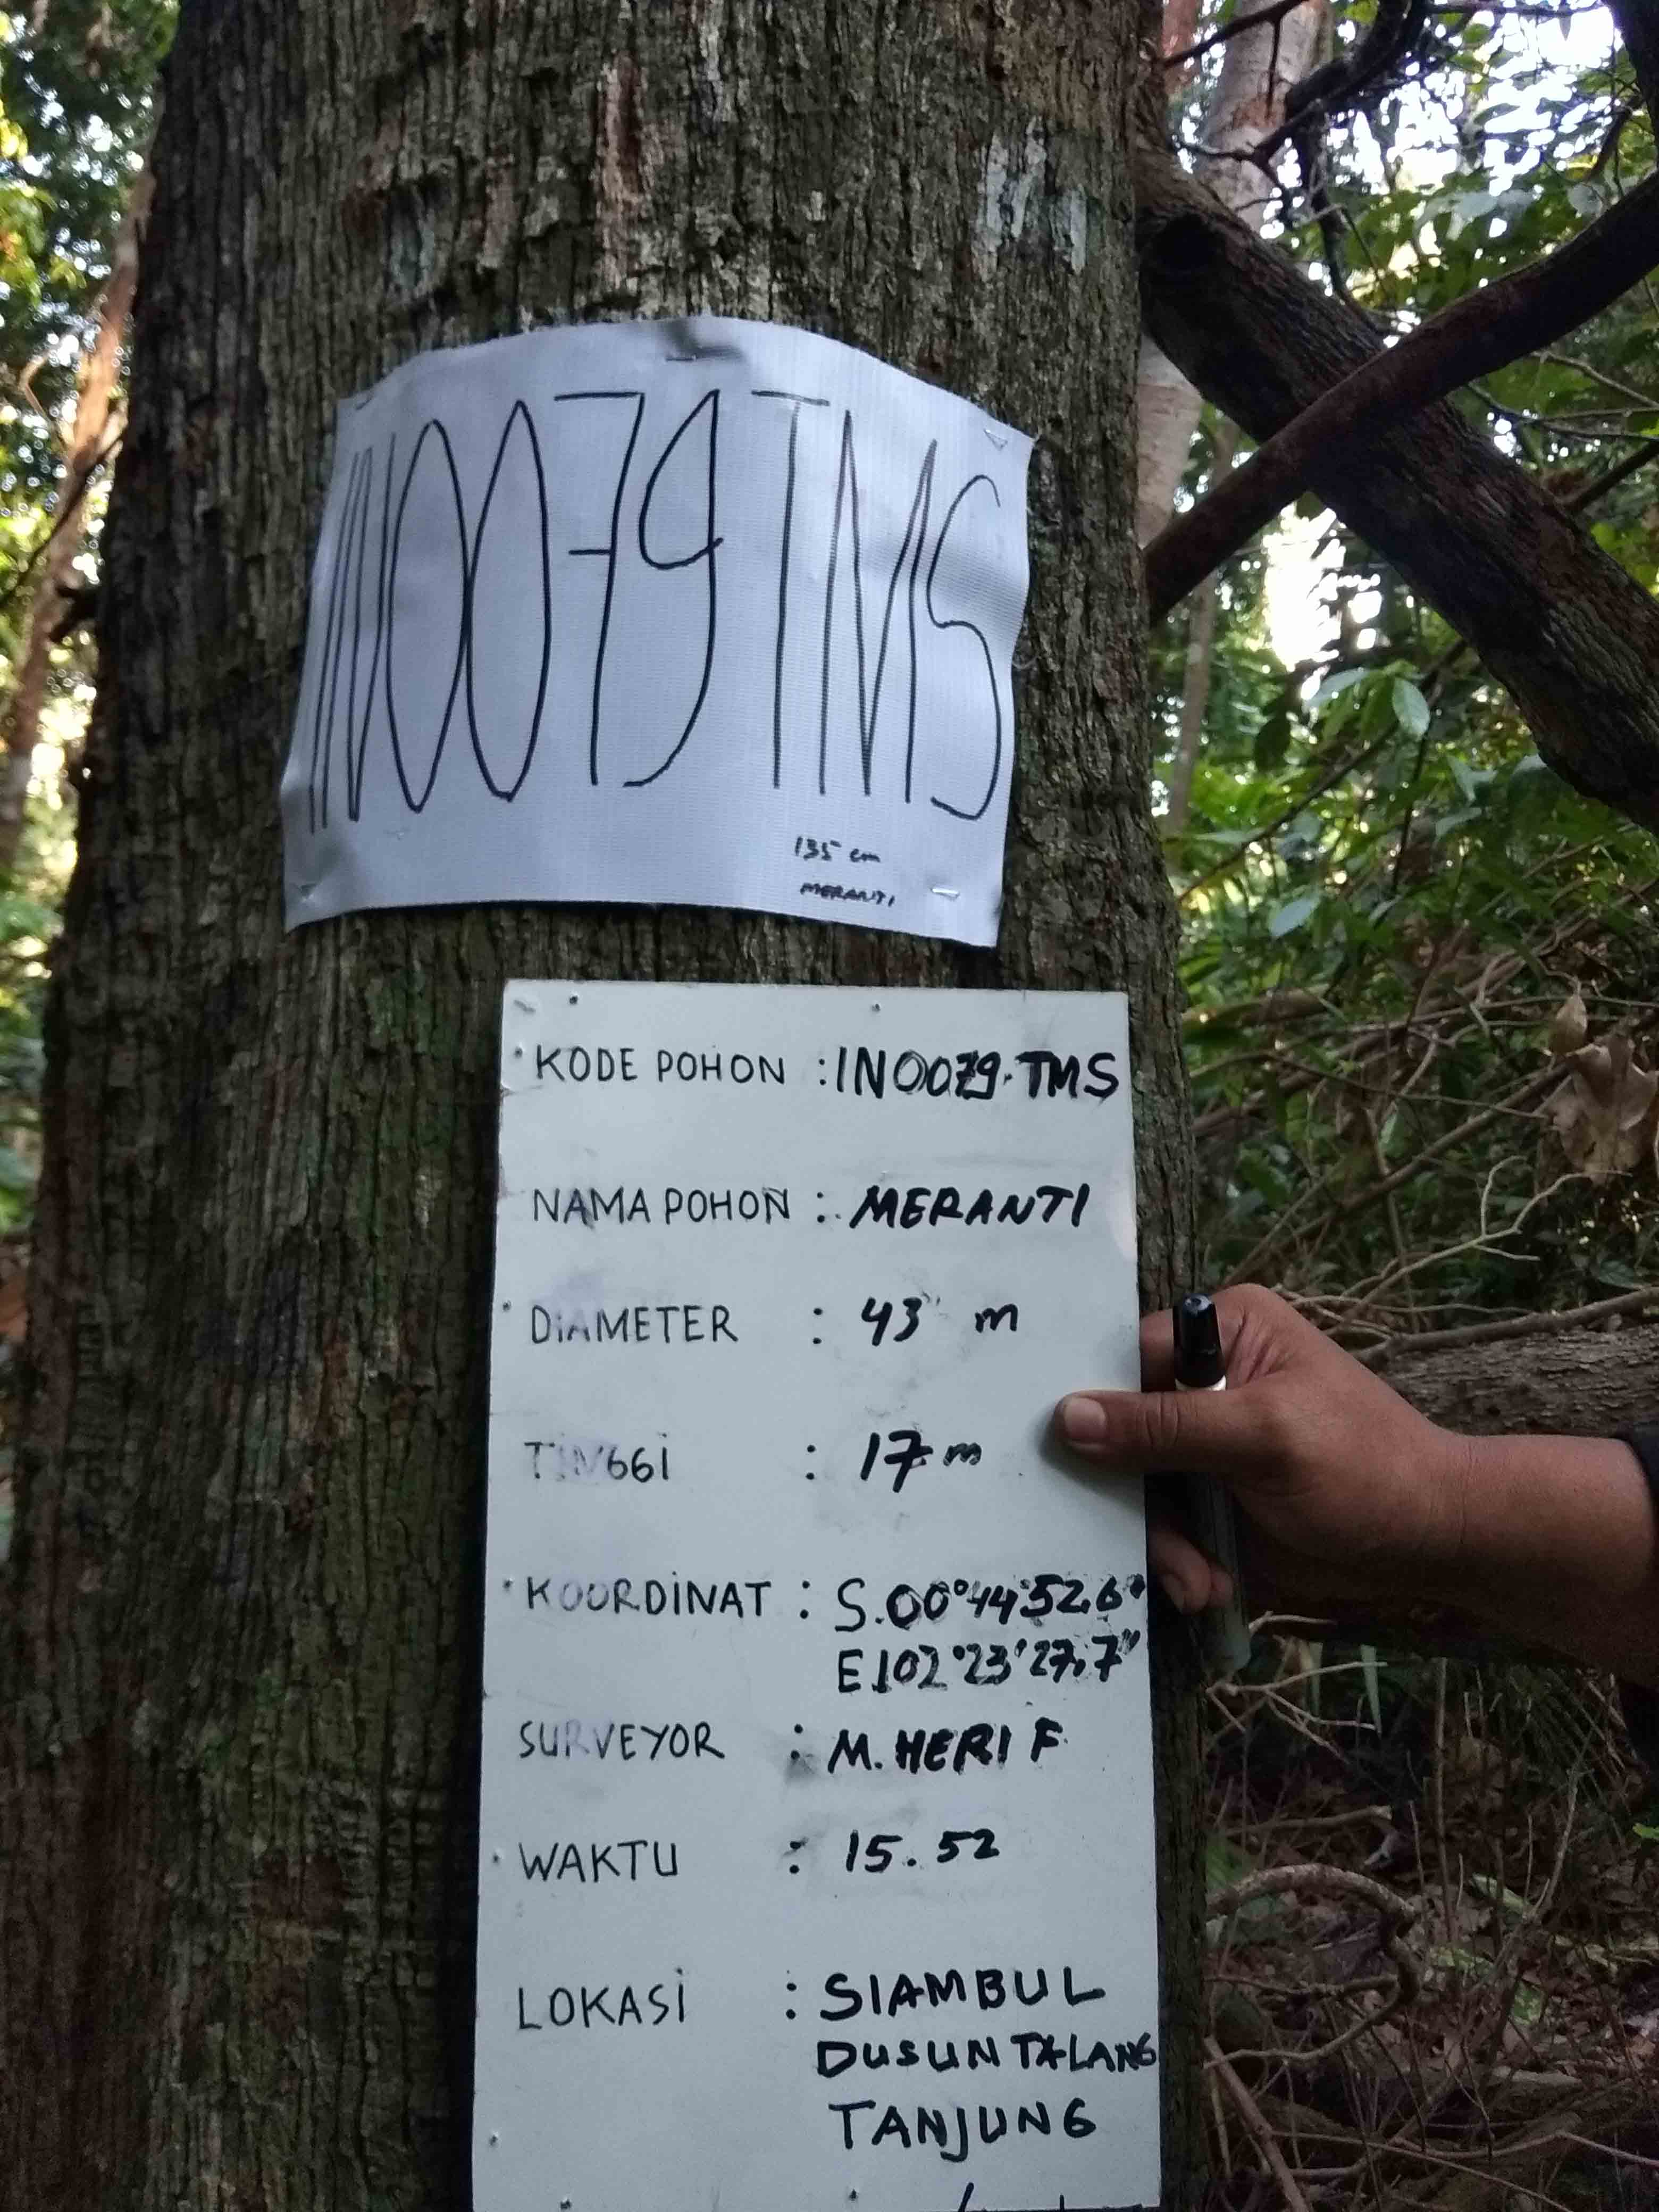 IN0079 TMS
135 cm
MERANTI
KODE POHON : IN0079. TMS
NAMA POHON : MERANTI
DIAMETER : 43 m
TINGGI : 17 m
KOORDINAT : S.00°44'52,6"
E102°23'27,7"
SURVEYOR : M. HERI F.
WAKTU : 15.52
LOKASI : SIAMBUL
DUSUN TALANG
TANJUNG